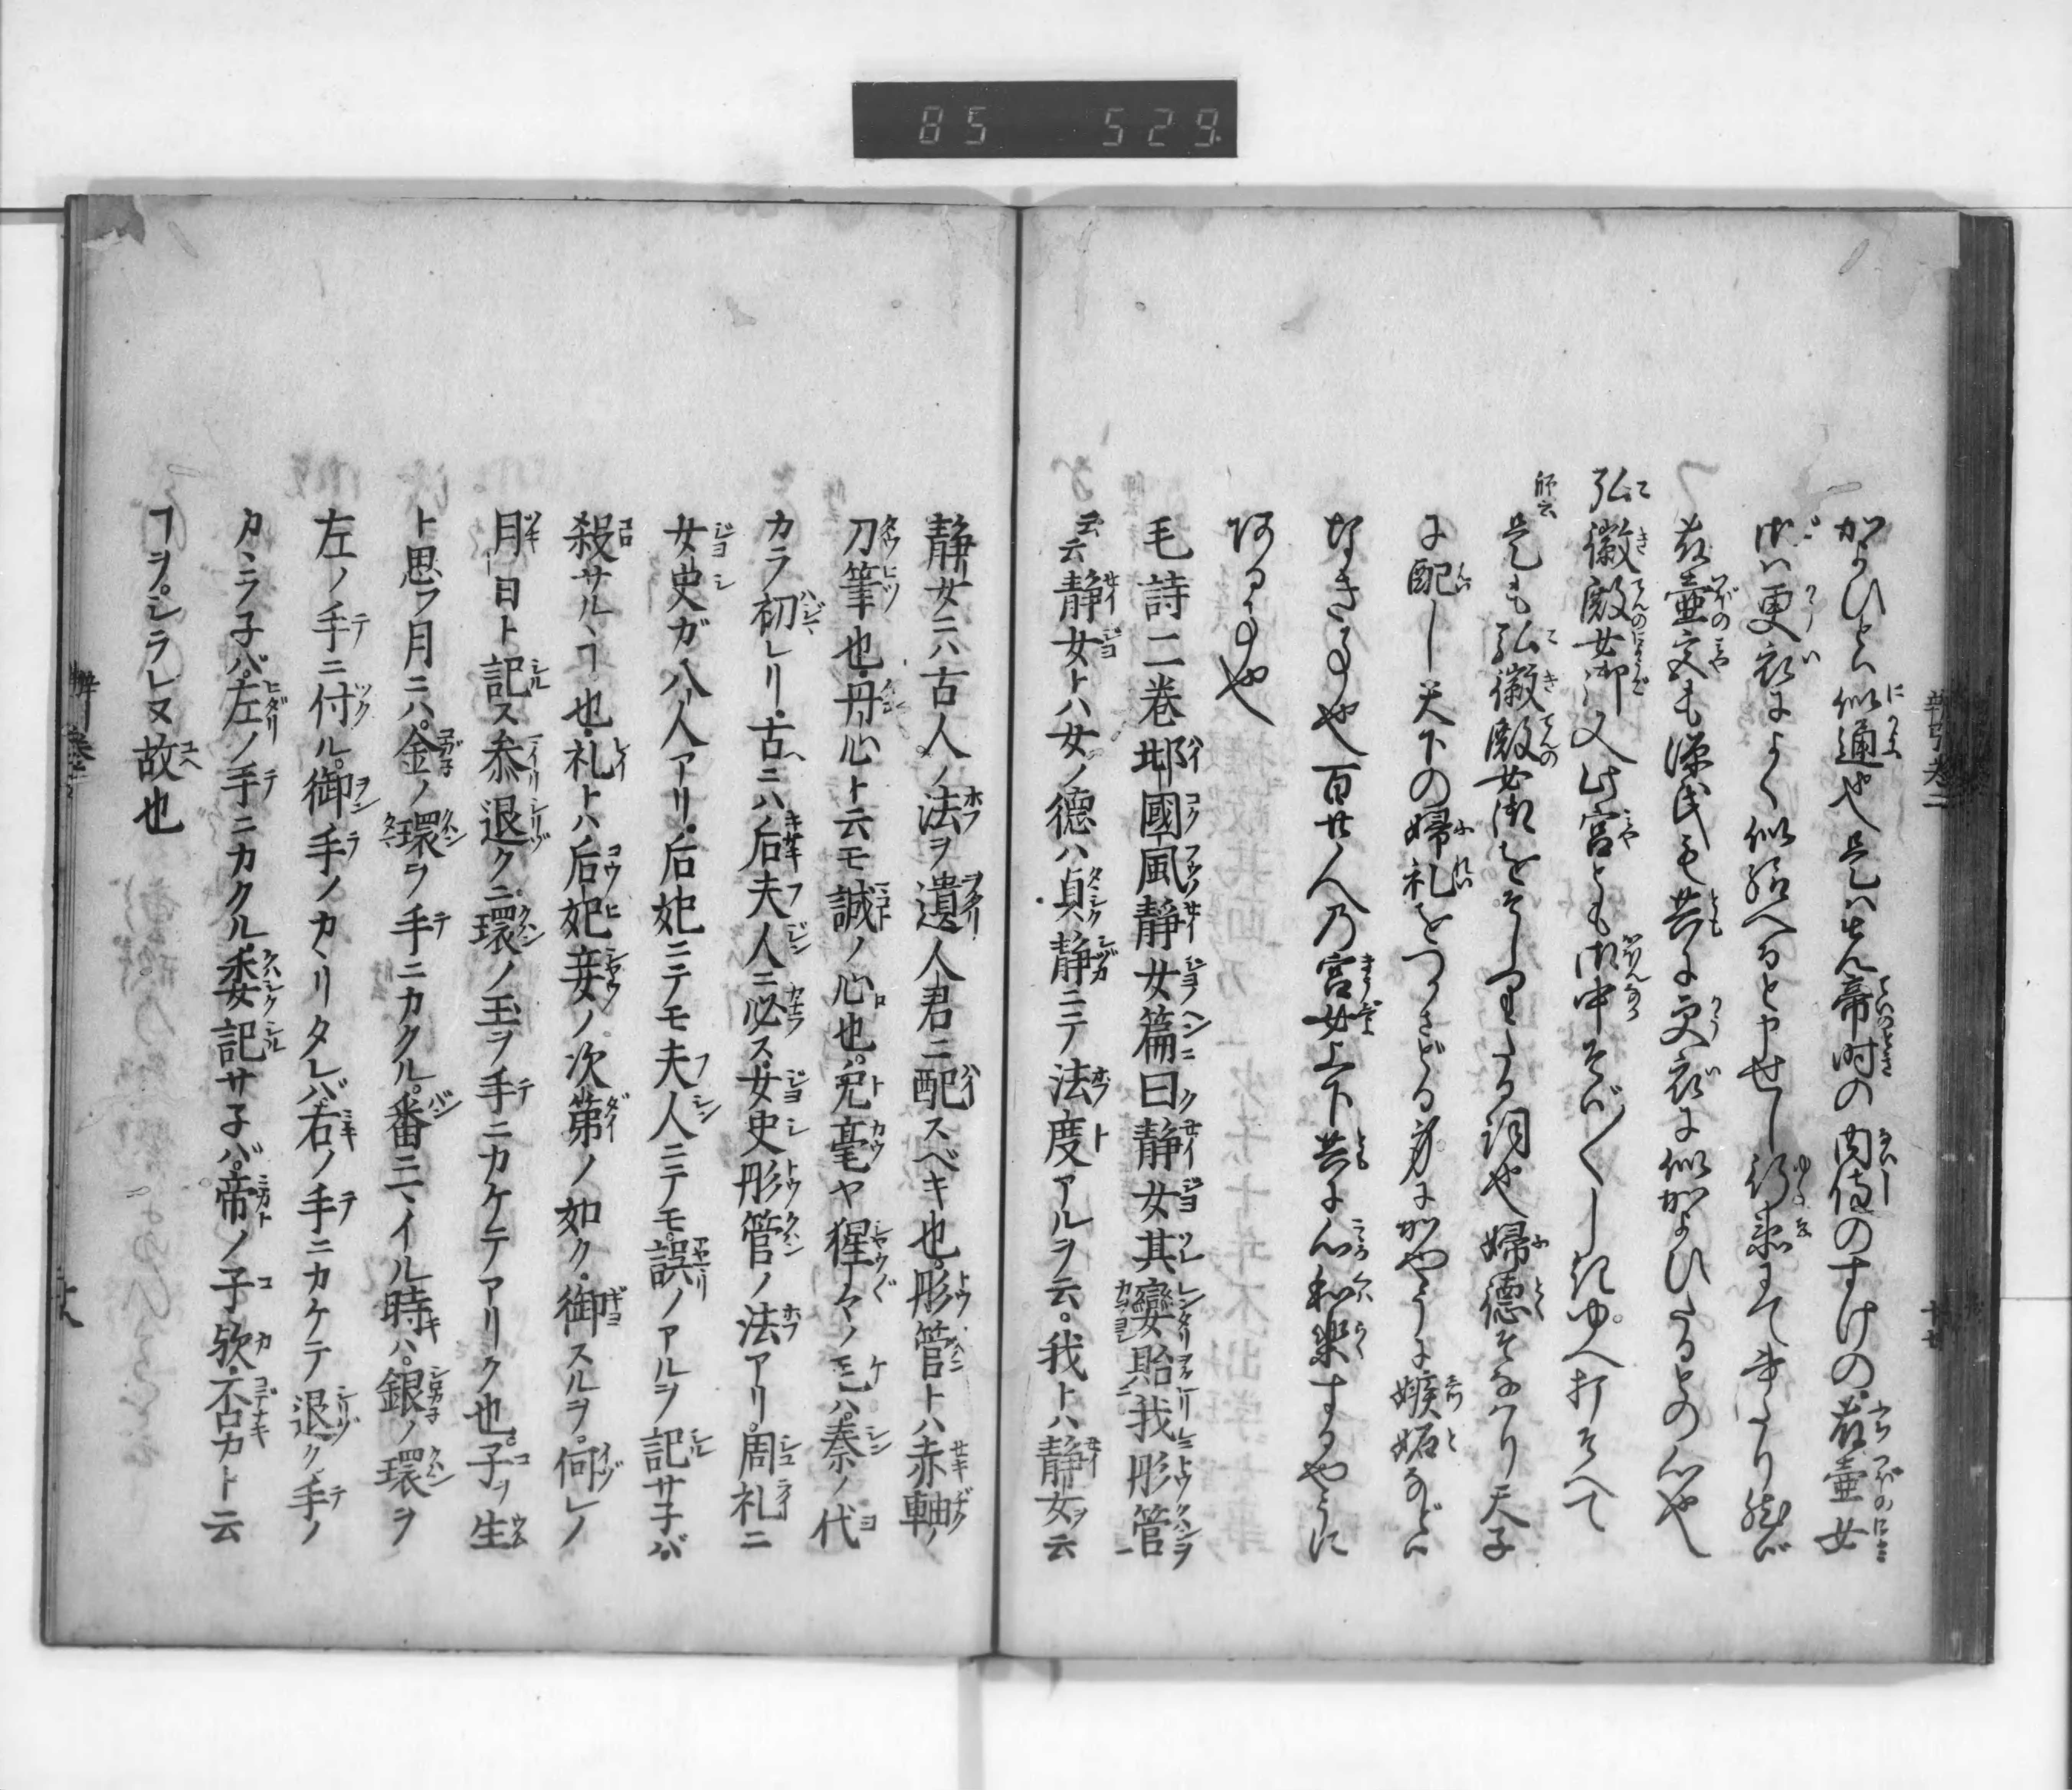 85 529
かよひとハ似通也是ハせん帝時の内侍のすけの藤壺女
御ハ更衣によく似給へるとやせし
藤壺宮も源氏も共に更衣に似かよひたるとの心也
弘徽殿女御又此宮とも御中そば〳〵しきゆへ打そへて
師云
是も弘徽殿女御をそしりたる詞也婦徳そなハり天子
に配し天下の婦礼をつかさどる身にかやうに嫉妬などハ
なきる事也百廿人乃宮女上下共に心和楽するやうに
ある事也
毛詩二巻邶國風静女篇曰静女其孌貽我彤管
云云静女トハ女ノ徳ハ貞静ニテ法度アルヲ云。我トハ静女ヲ云
静女ニハ古人ノ法ヲ遺人君ニ配スベキ也。彤管トハ赤軸ノ
刀筆也。丹心ト云モ誠ノ心也。兎毫ヤ猩々ノ毛ハ。秦ノ代
カラ初レリ。古ニハ后夫人ニ必ス女史彤管ノ法アリ。周礼ニ
女史ガ八人アリ。后妃ニテモ夫人ニテモ。誤ノアルヲ記サ子バ
殺サルヽヿ也。礼トハ后妃妾ノ次第ノ如ク。御スルヲ。何レノ
月日ト記ス。参退クニ環ノ玉ヲ手ニカケテアリク也。子ヲ生
ト思フ月ニハ。金ノ環ヲ手ニカクル。番ニイル時ハ。銀ノ環ヲ
左ノ手ニ付ル。御手ノカヽリタレバ右ノ手ニカケテ退ク。手ノ
カヽラ子バ。左ノ手ニカクル。委記サ子バ。帝ノ子欤。不占カト云
ヿヲ。シラレヌ故也